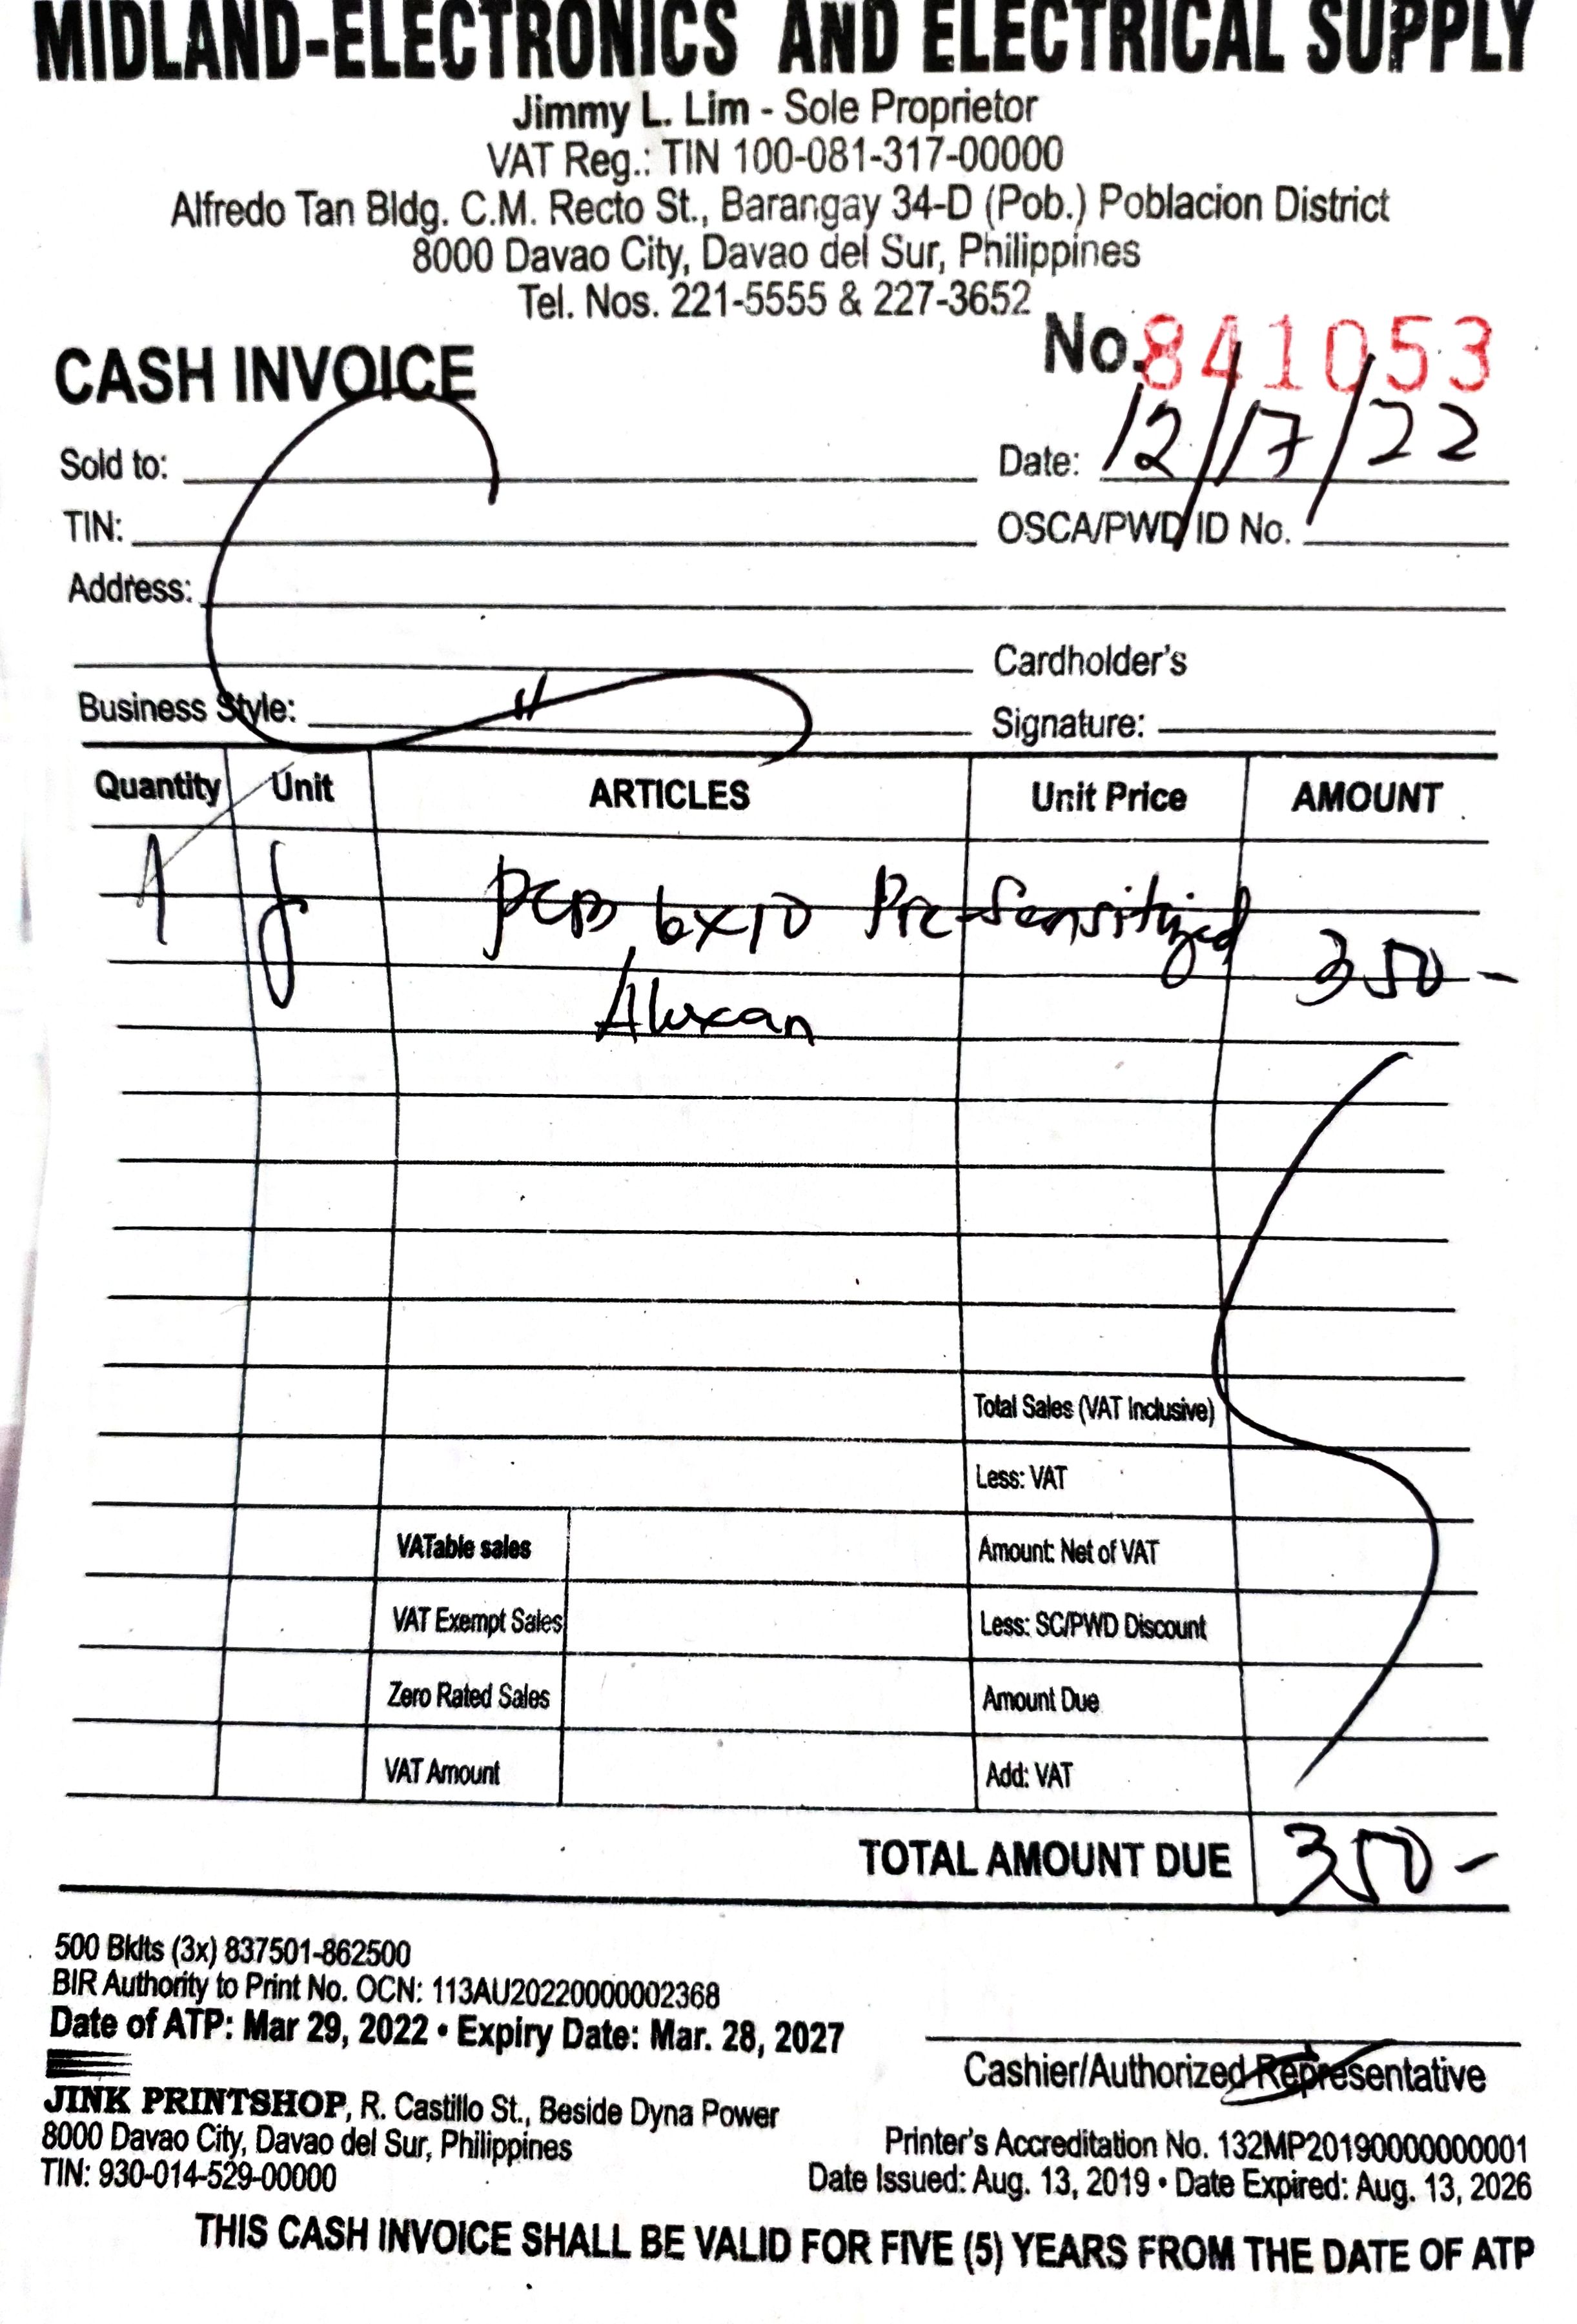 MIDLAND-ELECTRONICS AND ELECTRICAL SUPPLY
Jimmy L. Lim - Sole Proprietor
VAT Reg.: TIN 100-081-317-00000
Alfredo Tan Bldg. C.M. Recto St., Barangay 34-D (Pob.) Poblacion District
8000 Davao City, Davao del Sur, Philippines
Tel. Nos. 221-5555 & 227-3652
No. 841053
CASH INVOICE
Sold to: Date: 12/17/22
TIN: OSCA/PWD ID No.
Address:
Cardholder's
Business Style: Signature:
Quantity Unit ARTICLES Unit Price AMOUNT
1 PCB 6x10 Pre-Sensitized 350-
Total Sales (VAT Inclusive)
Less: VAT
VATable sales Amount: Net of VAT
VAT Exempt Sales Less: SC/PWD Discount
Zero Rated Sales Amount Due
VAT Amount Add: VAT
TOTAL AMOUNT DUE 350-
500 Bklts (3x) 837501-862500
BIR Authority to Print No. OCN: 113AU20220000002368
Date of ATP: Mar 29, 2022 • Expiry Date: Mar. 28, 2027
Cashier/Authorized Representative
JINK PRINTSHOP, R. Castillo St., Beside Dyna Power
8000 Davao City, Davao del Sur, Philippines
TIN: 930-014-529-00000
Printer's Accreditation No. 132MP20190000000001
Date Issued: Aug. 13, 2019 • Date Expired: Aug. 13, 2026
THIS CASH INVOICE SHALL BE VALID FOR FIVE (5) YEARS FROM THE DATE OF ATP